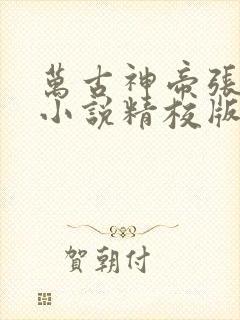 萬古神帝張
小說精校版
賀朝付